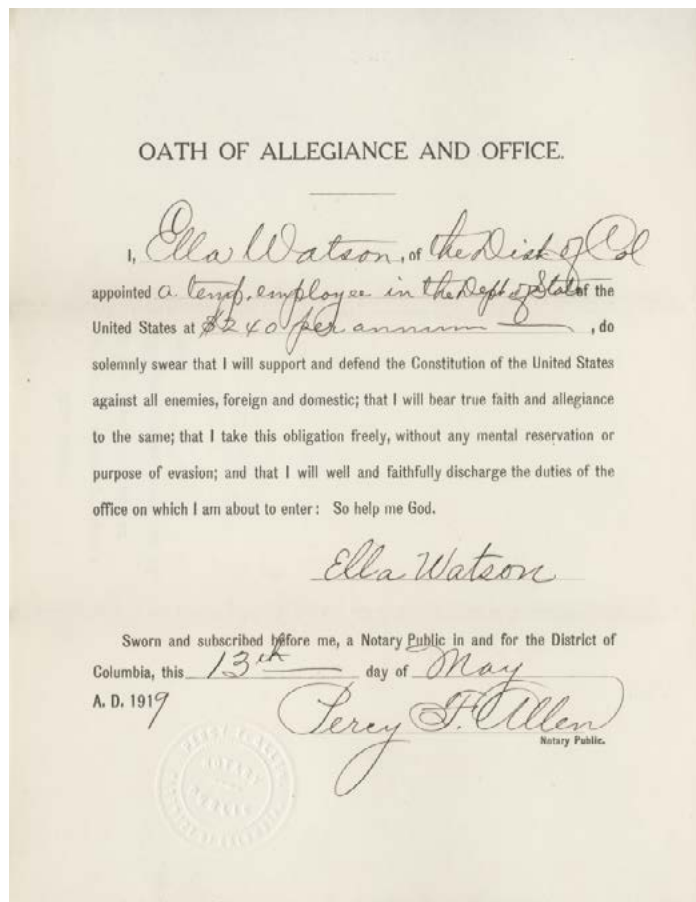 OATH OF ALLEGIANCE AND OFFICE.
I, Ella Watson, of the Dist of Col
appointed a temp. employee in the Dept of State of the
United States at $240 per annum , do
solemnly swear that I will support and defend the Constitution of the United States
against all enemies, foreign and domestic; that I will bear true faith and allegiance
to the same; that I take this obligation freely, without any mental reservation or
purpose of evasion; and that I will well and faithfully discharge the duties of the
office on which I am about to enter: So help me God.
Ella Watson
Sworn and subscribed before me, a Notary Public in and for the District of
Columbia, this 13th day of May
A. D. 1919
Percy F. Allen
Notary Public.
NOTARY
PUBLIC